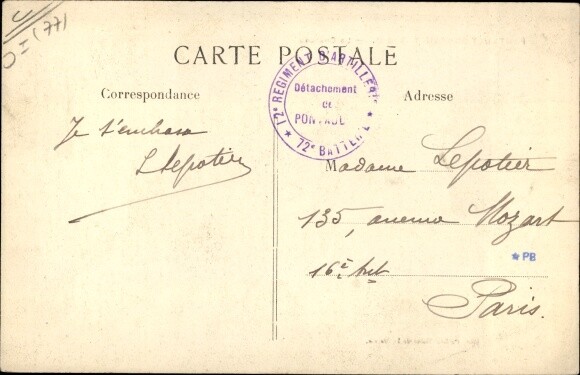 D=I (77)
CARTE POSTALE
Correspondance
Adresse
12e REGIMENT D'ARTILLERIE
Détachement
de
★ 72e BATTERIE ★
Je t'embrasse
L Lepotier
Madame Lepotier
135, avenue Mozart
16e
Paris.
★ PB